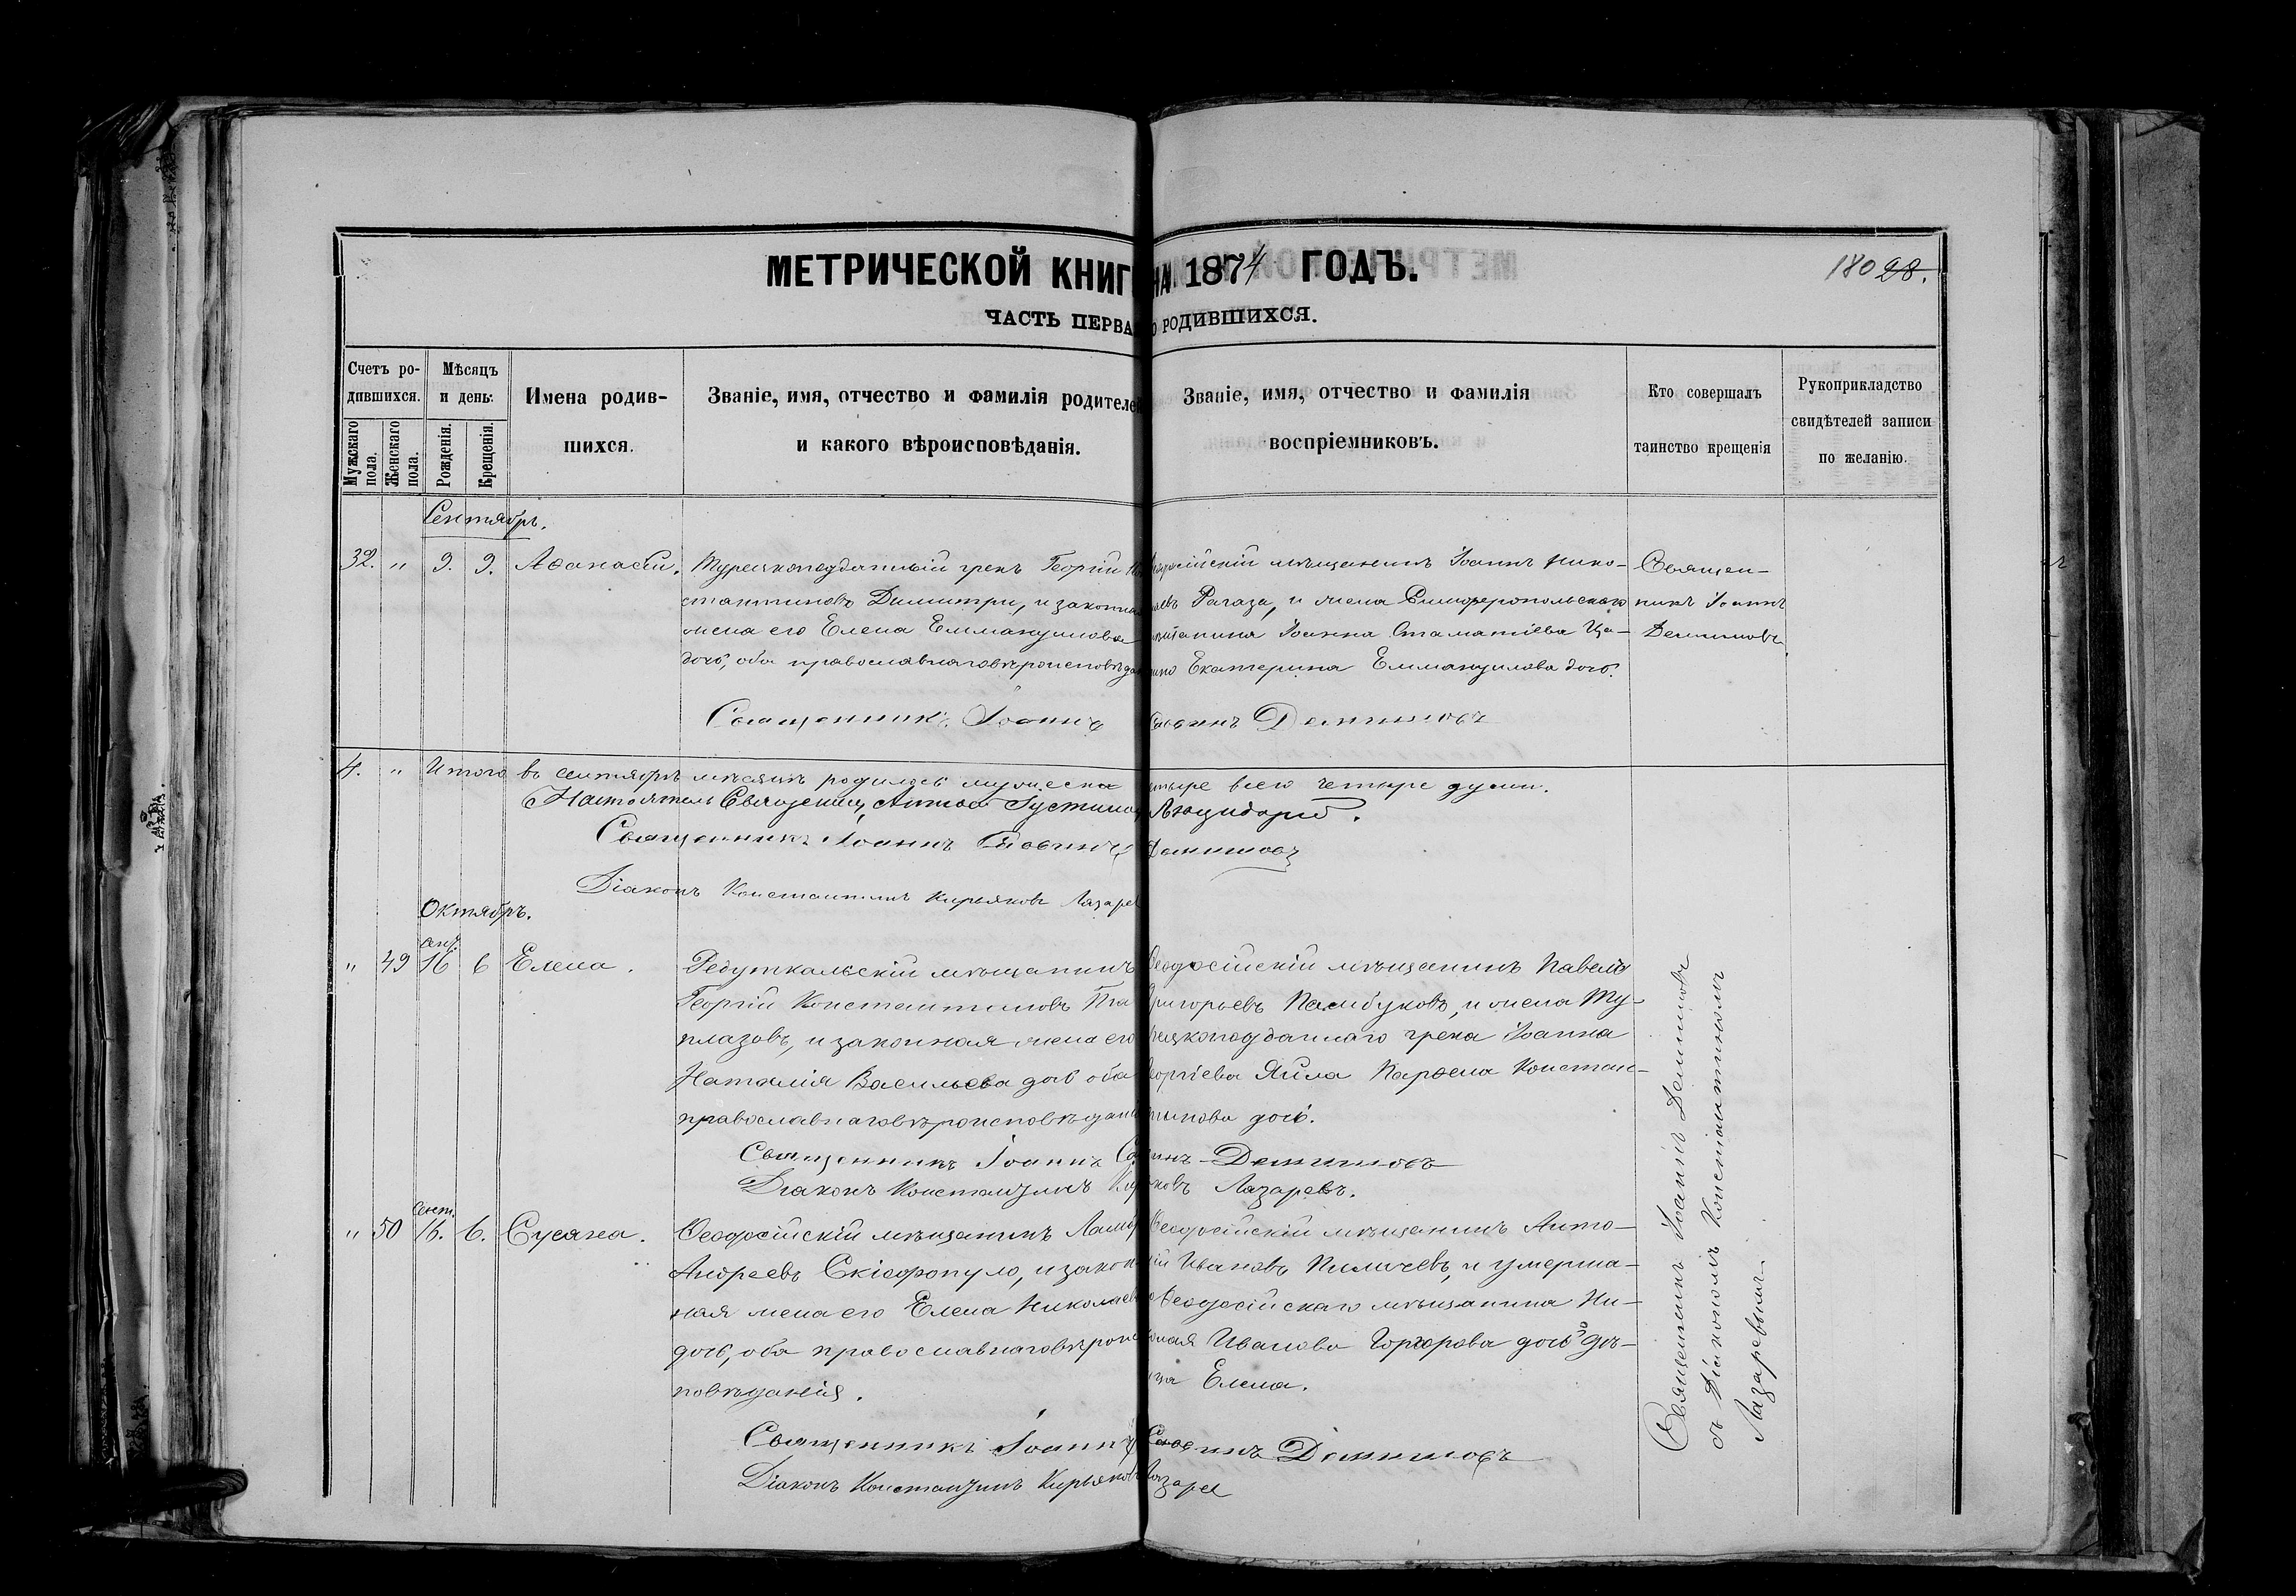 МЕТРИЧЕСКОЙ КНИГ НА 1874 ГОДЪ.
180 28.
ЧАСТЬ ПЕРВА О РОДИВШИХСЯ.
Счетъ ро-
дившихся.
Мужскаго пола.
Женскаго пола.
Мѣсяцъ
и день.
Рожденія.
Крещенія.
Имена родив-
шихся.
Званіе, имя, отчество и фамилія родителей
и какого вѣроисповѣданія.
Званіе, имя, отчество и фамилія
воспріемниковъ.
Кто совершалъ
таинство крещенія
Рукоприкладство
свидѣтелей записи
по желанію.
Сентябрь.
32. " 9. 9. Аѳанасій.
Турецкоподданный грекъ Георгій Кон
стантиновъ Димитри, и законна
жена его Елена Еммануилова
дочь, оба православнаго вѣроисповѣдан
одосійскій мѣщанинъ Іоаннъ Нико-
аевъ Рагаза, и жена Симферопольскаго
мѣщанина Іоанна Стаматіева Ца-
Екатерина Еммануилова дочь.
Священ-
никъ Іоаннъ
Деминовъ
Священникъ Іоаннъ Саввинъ Деминовъ
4. " Итого въ сентябрѣ мѣсяцѣ родилось мужеска четыре всего четыре души.
Настоятель Священникъ Антоній Іустиновъ
Священникъ Іоаннъ Саввинъ Деминовъ
Діаконъ Константинъ Кирьяковъ Лазарев
Октябрь.
" 49 сент. 16 6 Елена.
Редуткальскій мѣщанинъ
Георгій Константиновъ Пта
плазовъ, и законная жена его
Наталія Васильева дочь оба
православнаго вѣроисповѣдані
Ѳеодосійскій мѣщанинъ Павелъ
Григорьевъ Памбуковъ, и жена Ту-
рецкоподданнаго грека Іоанна
еоргіева Яйла Парѳена Констан-
тинова дочь.
Священникъ Іоаннъ Саввинъ Деминовъ
Діаконъ Константинъ Кирьяковъ Лазаревъ.
" 50 Сент. 16. 6. Сусанна.
Ѳеодосійскій мѣщанинъ Ламбр
Андреевъ Скіефопуло, и закон
ная жена его Елена Николаев
дочь, оба православнаго вѣроис
повѣданія.
Ѳеодосійскій мѣщанинъ Анто-
ній Ивановъ Пиличевъ, и умерша-
о Ѳеодосійскаго мѣщанина Ни-
колая Иванова дочь дѣ-
ица Елена.
Священникъ Іоаннъ Саввинъ Деминовъ
Діаконъ Константинъ Кирьяковъ Лазарев
Священникъ Іоаннъ Деминовъ
съ Діакономъ Константиномъ
Лазаревымъ.